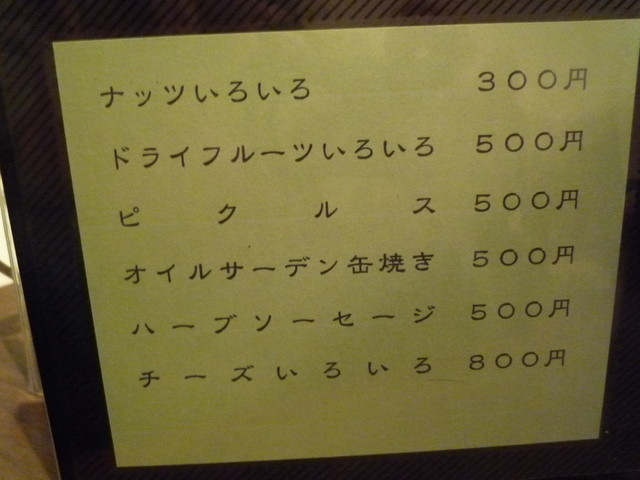 ナッツいろいろ ３００円
ドライフルーツいろいろ ５００円
ピクルス ５００円
オイルサーデン缶焼き ５００円
ハーブソーセージ ５００円
チーズいろいろ ８００円